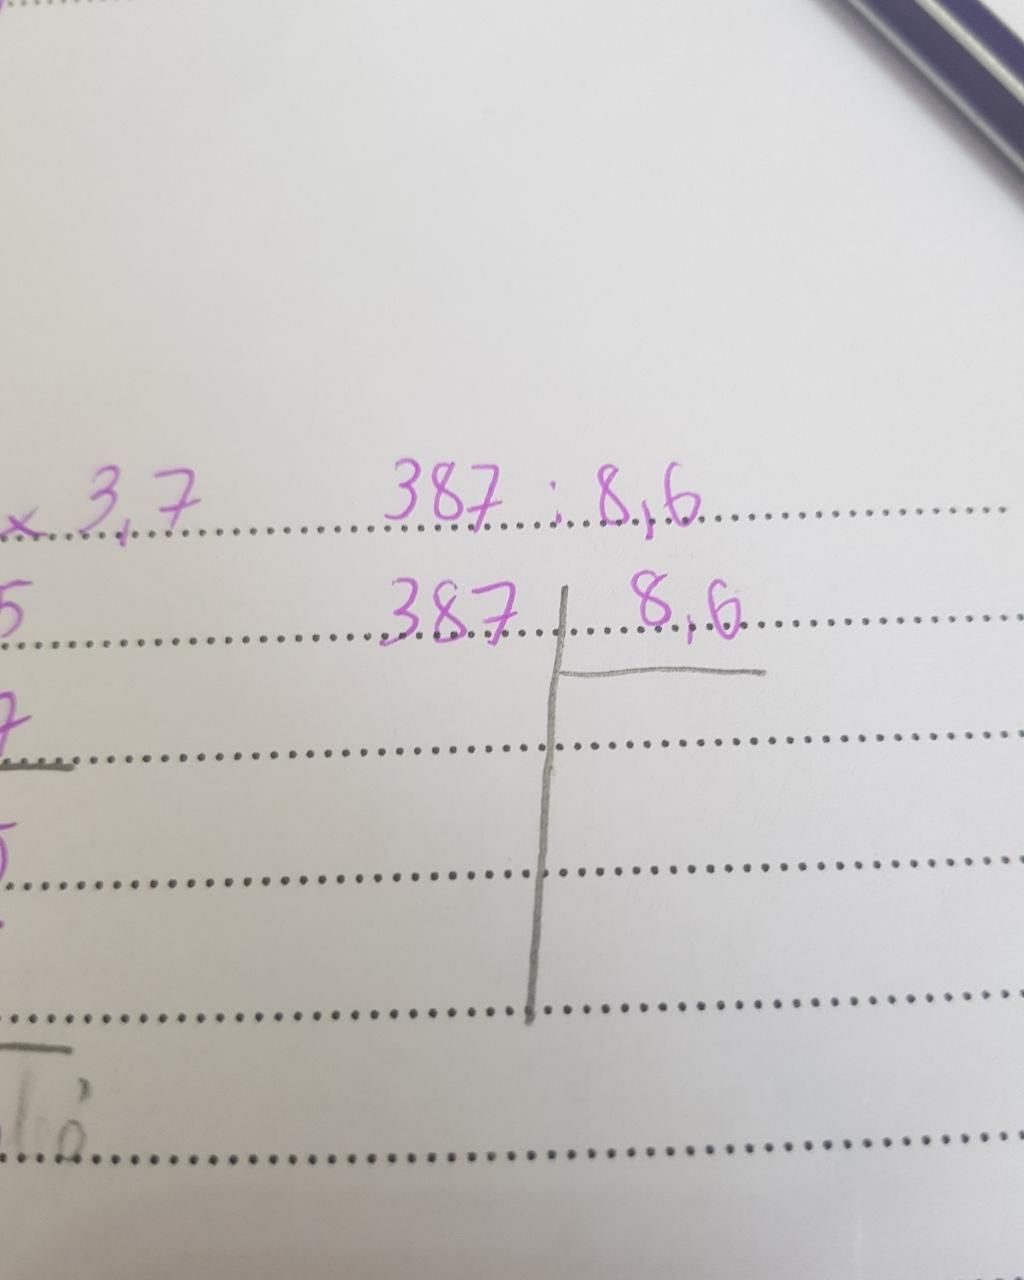 x 3,7 387 : 8,6
5 387 8,6
7